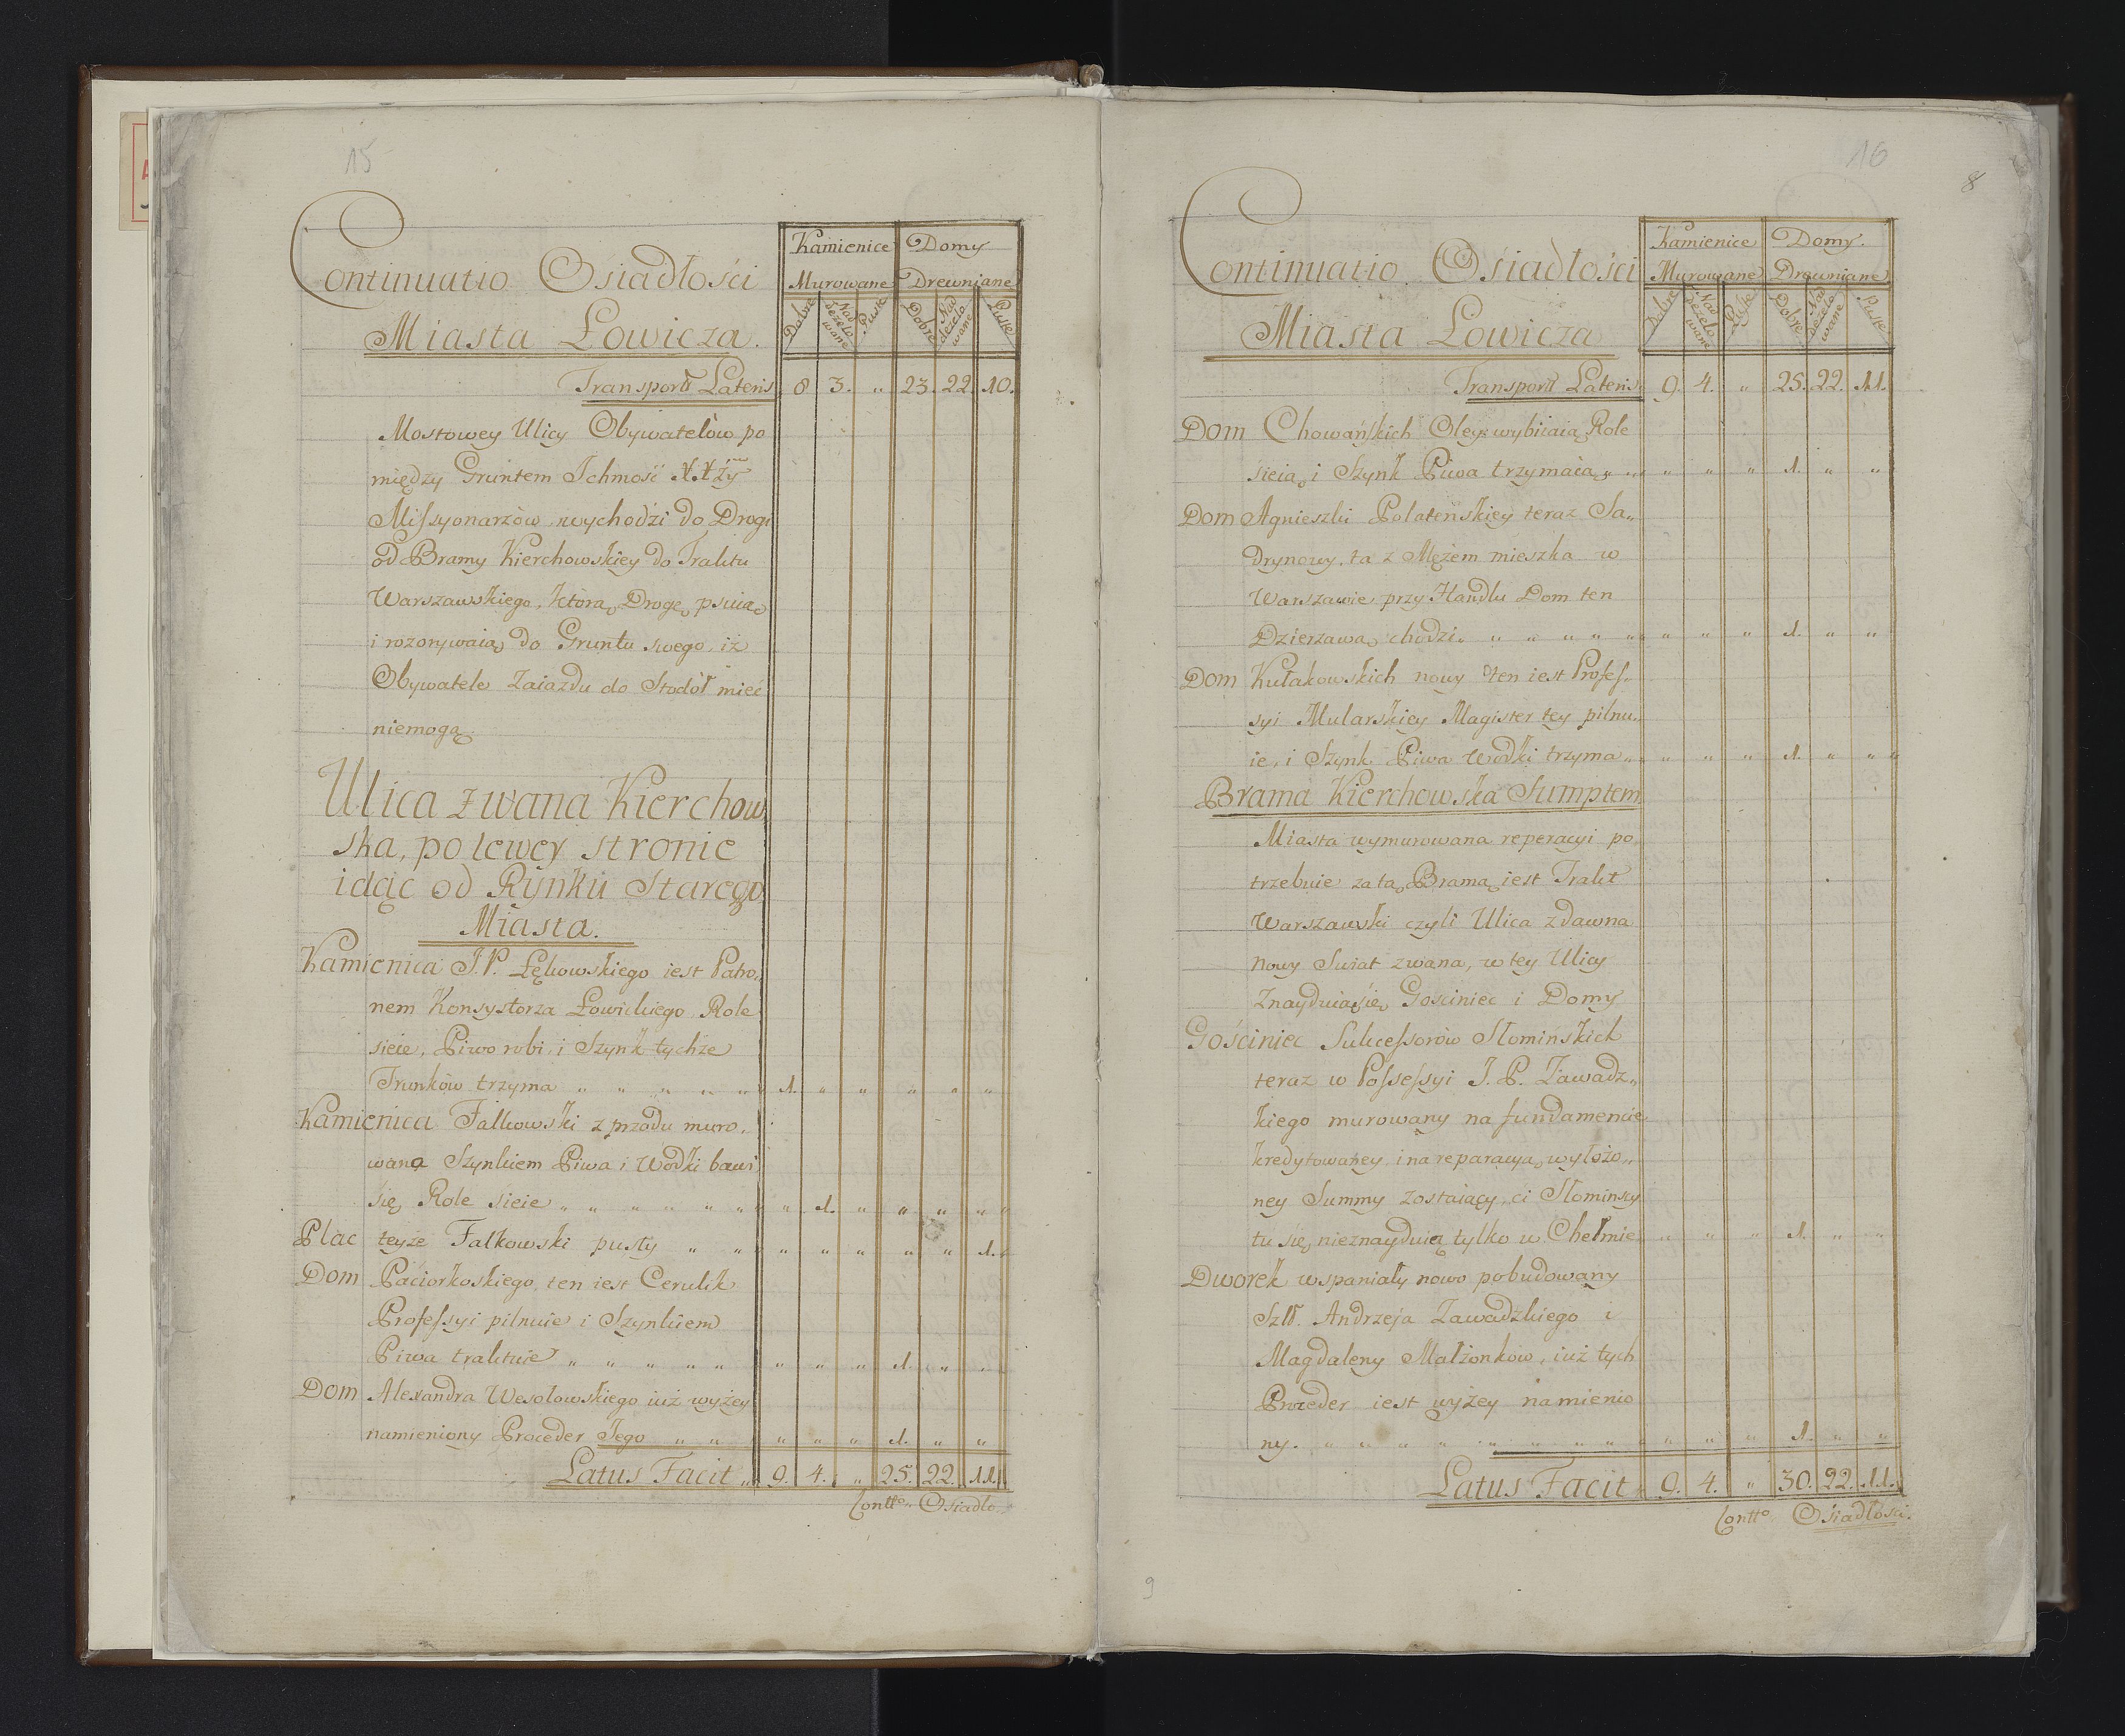 15
Continuatio Osiadłości
Miasta Łowicza.
Kamienice Murowane
Domy Drewniane
Dobre Nad dezelo wane Puste Dobre Nad dezelo wane Puste
Transport Lateris 8 3. „ 23. 22. 10.
Mostowey Ulicy Obywatelów po
między Gruntem Ichmość X.Xży
Missyonarzów, wychodzi do Drogi
od Bramy Kierchowskiey do Traktu
Warszawskiego, którą Drogę psuią
i rozorywaią do Gruntu swego, iż
Obywatele Zaiazdu do Stodół mieć
niemogą.
Ulica zwana Kierchow
ska, po lewey stronie
idąc od Rynku Starego
Miasta.
Kamienica J.P. Łękowskiego iest Patro„
nem Konsystorza Łowickiego Role
sieie, Piwo robi i Szynk tychże
Trunków trzyma „ „ „ „ „ „ 1. „ „ „ „ „
Kamienica Falkowski z przodu muro„
wana Szynkiem Piwa i Wodki bawi
się, Role sieie „ „ „ „ „ „ „ 1. „ „ „ „
Plac teyże Falkowski pusty „ „ „ „ „ „ „ 1.
Dom Paciorkoskiego, ten iest Cerulik
Professyi pilnuie i Szynkiem
Piwa traktuie „ „ „ „ „ „ „ „ 1. „ „
Dom Alexandra Wesołowskiego iuż wyżey
namieniony Proceder Jego „ „ „ „ „ 1. „ „
Latus Facit „ 9. 4. „ 25. 22. 11.
Contto „ Osiadło„
16
8
Continuatio Osiadłości
Miasta Lowicza
Kamienice Murowane
Domy. Drewniane
Dobre Nad dezelo wane Puste Dobre Nad dezelo wane Puste
Transport Lateris 9. 4. „ 25. 22. 11.
Dom Chowańskich Oley wybiiaią Role
sieią, i Szynk Piwa trzymaią „ „ „ „ 1. „ „
Dom Agnieszki Polateńskiey teraz Sa„
drynowy, ta z Mężem mieszka w
Warszawie przy Handlu Dom ten
Dzierzawą chodzi. „ „ „ „ „ „ „ „ 1. „ „
Dom Kułakowskich nowy ten iest Profes„
syi Mularskiey Magister tey pilnu„
ie, i Szynk Piwa Wodki trzyma „ „ „ „ 1. „ „
Brama Kierchowska Sumptem
Miasta wymurowana reperacyi po
trzebuie za tą Bramą iest Trakt
Warszawski czyli Ulica zdawna
Nowy Swiat zwana, w tey Ulicy
Znayduią się Gosciniec i Domy
Gościniec Sukcessorów Słomińskich
teraz w Possessyi J. P. Zawadz„
kiego murowany na fundamencie
kredytowaney i na reparacyą wyłożo„
ney Summy zostaiący, ci Słominscy
tu się nieznayduią tylko w Chełmie „ „ „ 1. „ „
Dworek wspaniały nowo pobudowany
Szltt. Andrzeja Zawadzkiego i
Magdaleny Małżonków, iuż tych
Proceder iest wyżey namienio
ny. „ „ „ „ „ „ „ „ „ „ „ „ 1. „ „
Latus Facit 9. 4. „ 30. 22. 11.
Contto Osiadłości.
9